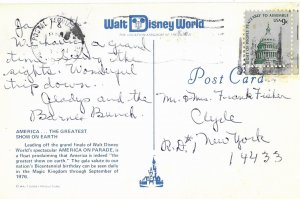 Walt Disney World
THE VACATION KINGDOM OF THE WORLD
We having a grand
time doing the
sights. Wonderful
trip down.
Gladys and the
Barnes Bunch.
Post Card
Mr. & Mrs. Frank Fisher
Clyde
R.D. #1 New York
14433
AMERICA . . . THE GREATEST
SHOW ON EARTH
Leading off the grand finale of Walt Disney
World's spectacular AMERICA ON PARADE, is
a float proclaiming that America is indeed "the
greatest show on earth." The gala salute to our
nation's Bicentennial birthday can be seen daily
in the Magic Kingdom through September of
1976.